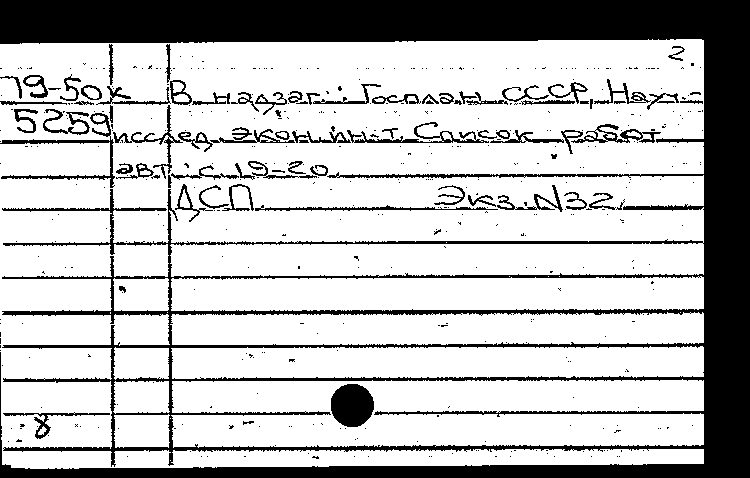 2.
79-50х В надзаг.: Госплан СССР, Науч.-
5259 исслед. экон. ин-т. Список работ
авт.: с. 19-20.
ДСП. Экз. N32.
8